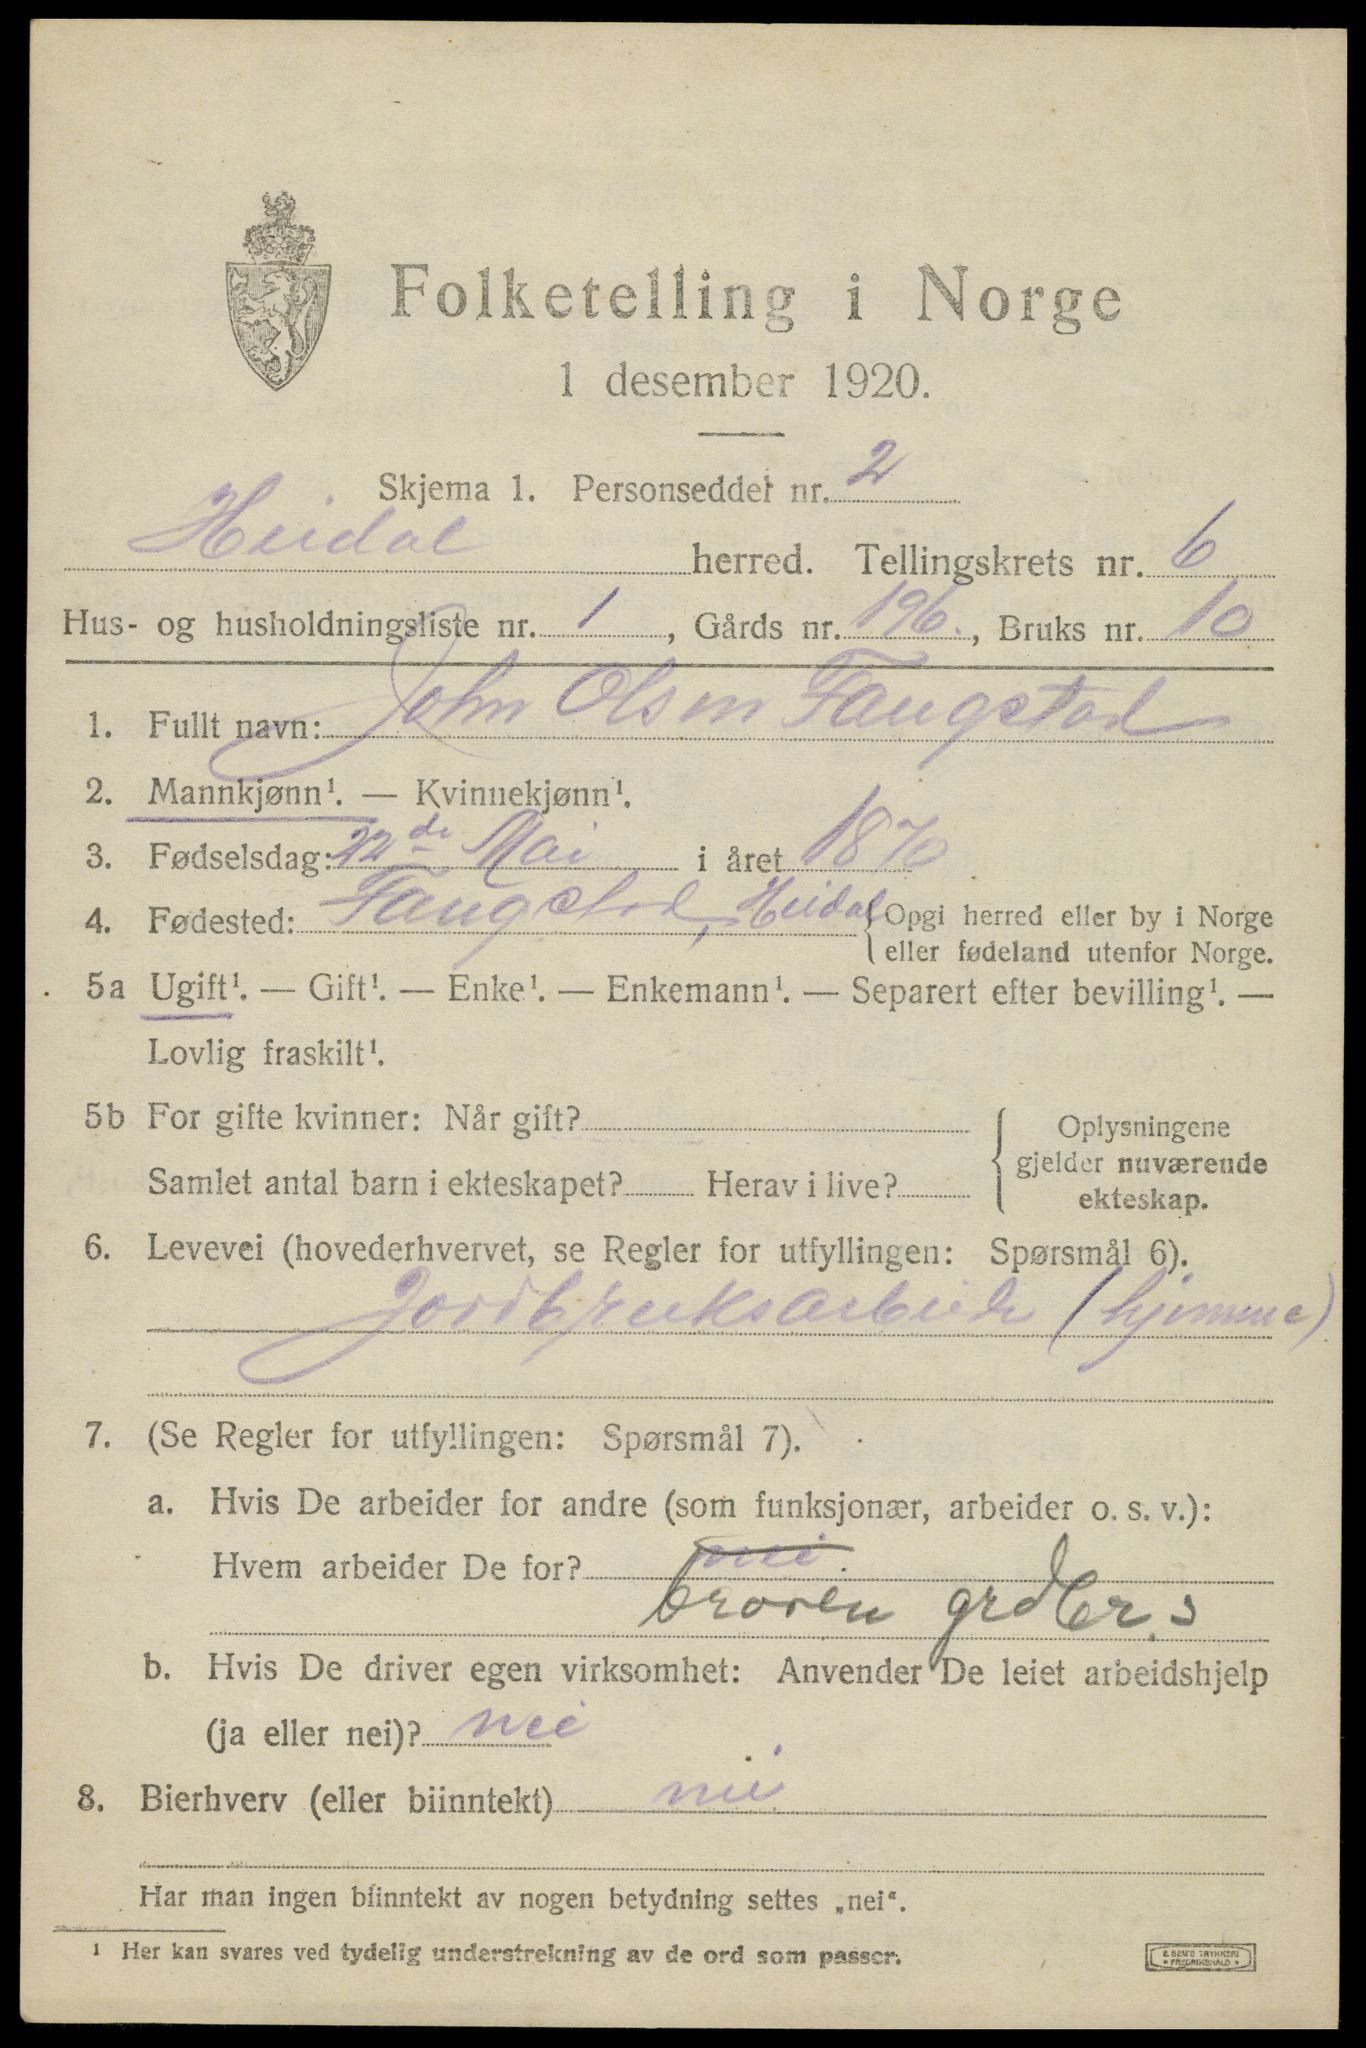 Folketelling i Norge
1 desember 1920.
Skjema 1. Personseddel nr. 2
Heidal herred. Tellingskrets nr. 6
Hus- og husholdningsliste nr. 1, Gårds nr. 196., Bruks nr. 10
1. Fullt navn: John Olsen Faugstad
2. Mannkjønn¹. — Kvinnekjønn¹.
3. Fødselsdag: 22de Mai i året 1870
4. Fødested: Faugstad, Heidal { Opgi herred eller by i Norge
eller fødeland utenfor Norge.
5a Ugift¹. — Gift¹. — Enke¹. — Enkemann¹. — Separert efter bevilling¹. —
Lovlig fraskilt¹.
5b For gifte kvinner: Når gift? { Oplysningene
gjelder nuværende
Samlet antal barn i ekteskapet? Herav i live? ekteskap.
6. Levevei (hovederhvervet, se Regler for utfyllingen: Spørsmål 6).
Jordbruksarbeide (hjemme)
7. (Se Regler for utfyllingen: Spørsmål 7).
a. Hvis De arbeider for andre (som funksjonær, arbeider o. s. v.):
Hvem arbeider De for? nei.
broren grdbr.s
b. Hvis De driver egen virksomhet: Anvender De leiet arbeidshjelp
(ja eller nei)? nei
8. Bierhverv (eller biinntekt) nei
Har man ingen biinntekt av nogen betydning settes „nei“.
¹ Her kan svares ved tydelig understrekning av de ord som passer.
E SEM'S TRYKKERI
* FREDRIKSHALD *